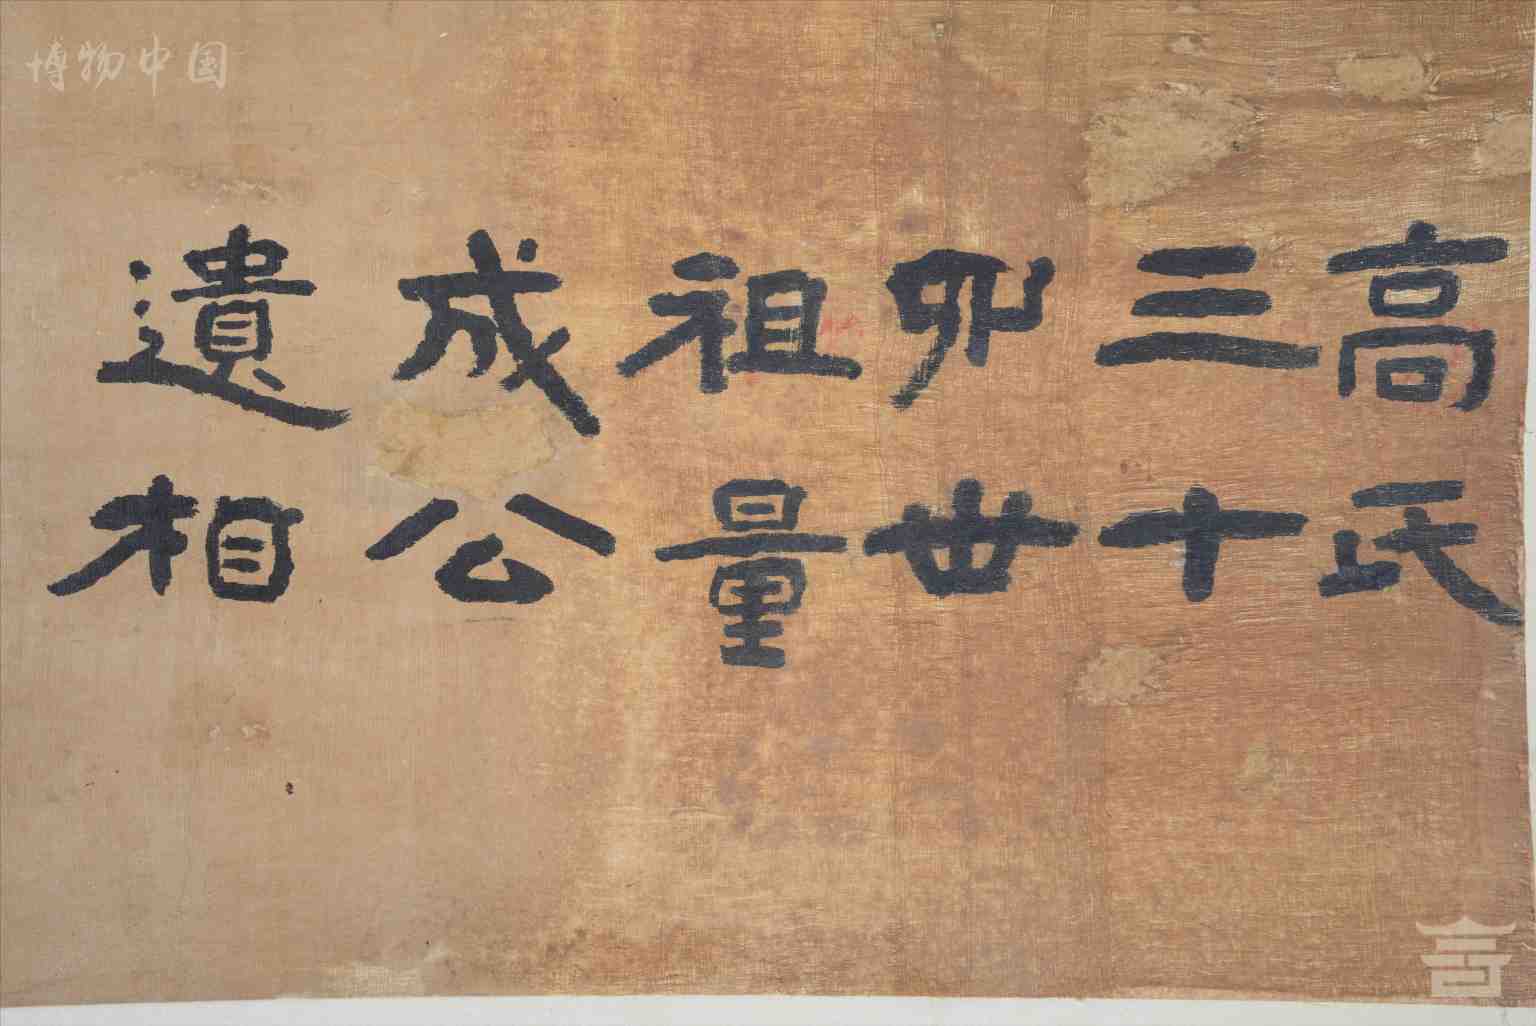 高氏
三十
卯世
祖量
成公
遺相
博物中国